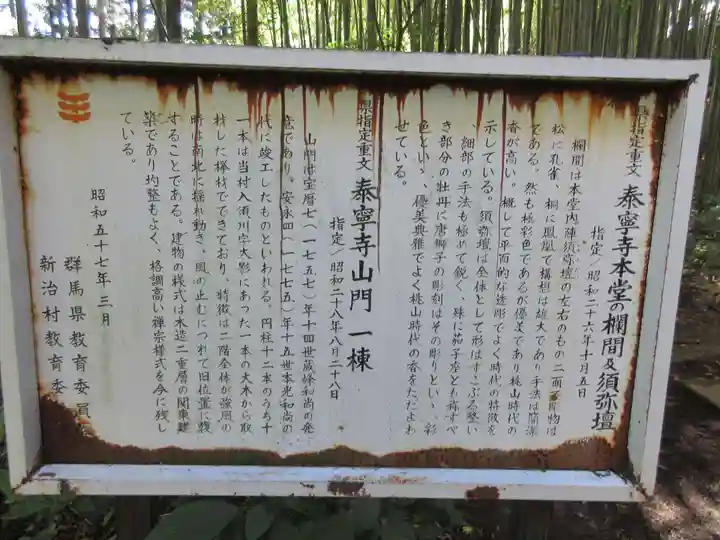 県指定重文 泰寧寺本堂の欄間及須弥壇
指定/昭和二十六年十月五日
欄間は本堂内陣須弥壇の左右のもの二面
松に孔雀、桐に鳳凰で構想は雄大であり手法は闊達
である。然も極彩色であるが優美であり桃山時代の
香が高い。概して平面的な透彫でよく時代の特徴を
示している。須弥壇は全体として形はすこぶる整い
、細部の手法も極めて鋭く、殊に茄子座とも称すべ
き部分の牡丹に唐獅子の彫刻はその彫りといゝ、彩
色といゝ、優美典雅でよく桃山時代の香をただよわ
せている。
県指定重文 泰寧寺山門 一棟
指定/昭和二十八年八月二十八日
山門は宝暦七(一七五七)年十四世蔵峰和尚の発
意であり。安永四(一七七五)年十五世本光和尚の
代に竣工したものといわれる。円柱十二本のうち十
一本は当村入須川字大影にあった一本の大木から取
材した欅材でできており、特徴は二階全体が強風の
時は南北に揺れ動き、風の止むにつれて旧位置に復
することである。建物の様式は木造二重層の関東建
築であり均整もよく、格調高い禅宗様式を今に残し
ている。
昭和五十七年三月
群馬県教育委員
新治村教育委